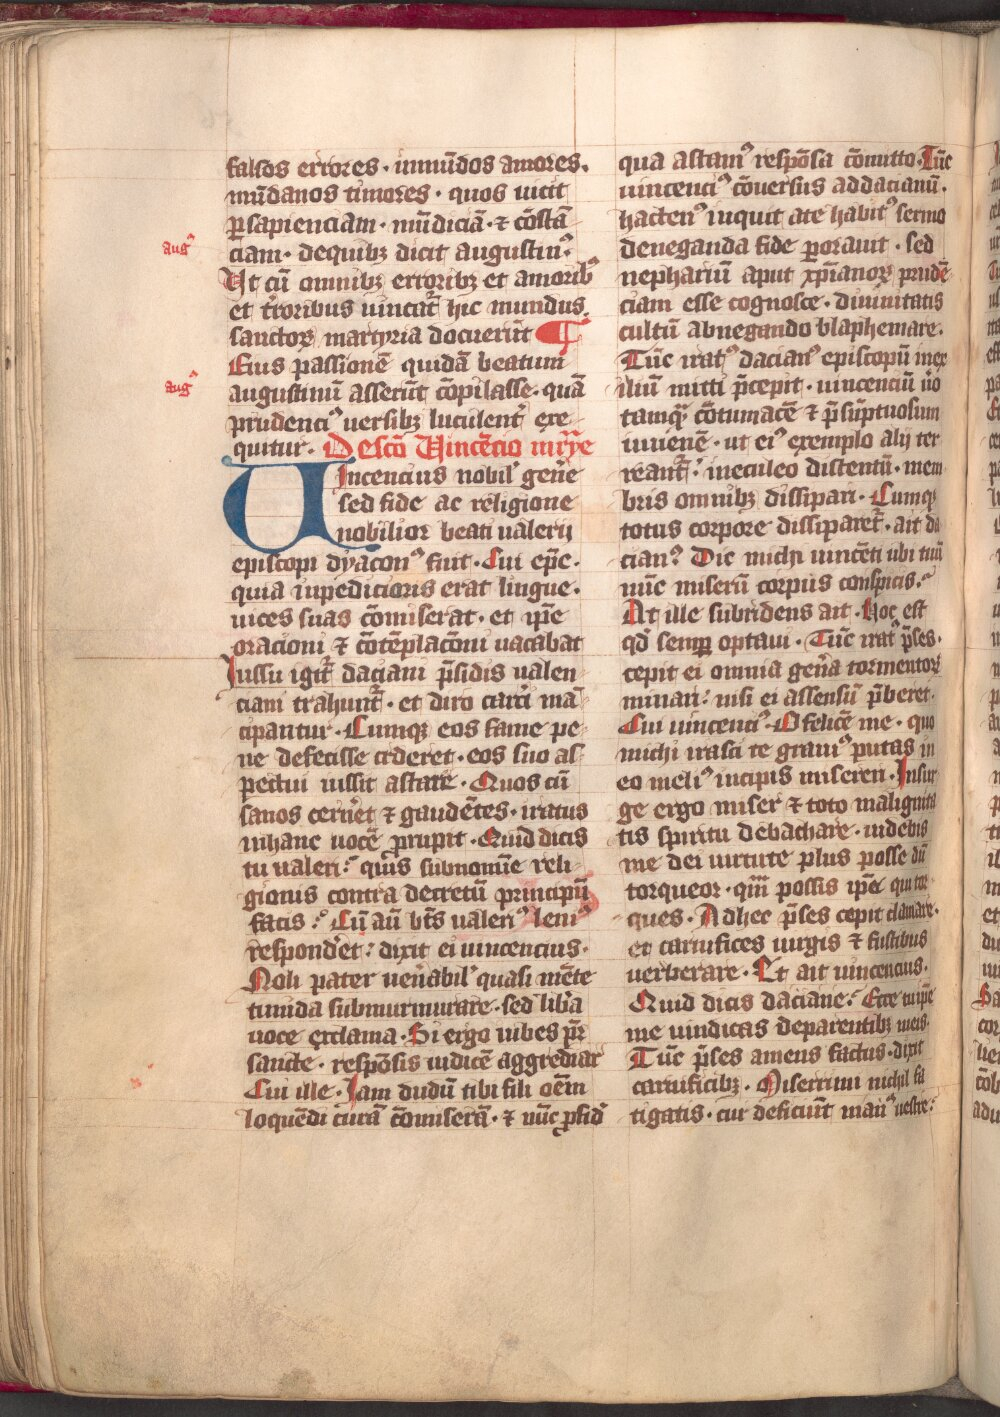 falsos errores · inmūdos amores.
mūdanos timores · quos uicit
ꝑ sapienciam · mūdiciā · ⁊ cōstā
augꝰ
ciam · de quibꝫ dicit augustinꝰ.
Ut cū omnibꝫ erroribꝫ et amoribꝰ
et t̄roribus uincat᷑ hic mundus.
sanctoꝝ martyria docuerūt ¶
Eius passionē quidā beatum
augꝰ
augustinū asserūt cōpilasse · quā
prudenciꝰ uersibꝫ luculent̄ exe
quitur. De sctō Vincētio mr̄ye
Uincencius nobilꝭ gen̄e
sed fide ac religione
nobilior beati ualerii
episcopi dyaconꝰ fuit · Cui ep̄e ·
quia inpedicioris erat lingue ·
uices suas cōmiserat · et ip̄e
oracioni ⁊ cōtēplacōni uacabat
Jussu igit᷑ daciani p̄sidis ualen
ciam trahunt᷑ · et diro carc̄i mā
cipantur · Cumqꝫ eos fame pe
ne defecisse crderet · eos suo as
pectui iussit astare · Quos cū
sanos cern̄et ⁊ gaudētes · iratus
in hanc uocē prupit · Quid dicis
tu ualeri? qui sub nomīe reli
gionis contra decretū principū
facis? Cū aū bt̄s ualeriꝰ leniꝰ
respond̄et: dixit ei uincencius ·
Noli pater uen̄abilꝭ quasi mēte
timida submurmurare · sed lib̄a
uoce exclama · Si ergo iubes pr̄
sancte · respōsis iudicē aggrediar
Cui ille · Jam dudū tibi fili oēm
loquēdi curā cōmiserā · ⁊ nūc ꝓ fid̄
qua astamꝰ respōsa cōmitto · Tūc
uincenciꝰ cōuersus ad dacianū ·
hactenꝰ inquit a te habitꝰ sermo
de neganda fide ꝑorauit · sed
nephariū aput xp̄ianoꝝ prudē
ciam esse cognosce · diuinitatis
cultū abnegando blaphemare ·
Tūc iratꝰ dacianꝰ episcopū in ex
iliū mitti p̄cepit · uincenciū ūo
tamqꝫ cōtumacē ⁊ p̄sūptuosum
iuuenē · ut eiꝰ exemplo alij ter
reant᷑: in eculeo distentū · mem
bris omnibꝫ dissipari · Cumqꝫ
totus corpore dissiparet᷑ · ait da
cianꝰ Dic michi uincēti ubi tuū
nūc miserū corpus conspicis?
At ille subridens ait · Hoc est
qd̄ semꝑ optaui · Tūc iratꝰ p̄ses ·
cepit ei omnia gen̄a tormentoꝝ
minari: nisi ei assensū p̄beret ·
Cui uincenciꝰ · O felicē me · quo
michi irasci te grauiꝰ putas in
eo meliꝰ incipis misereri · Insur
ge ergo miser ⁊ toto malignita
tis spiritu debachare · uidebis
me dei uirtute plus posse dū
torqueor · qm̄ possis ip̄e qui tor
ques · Ad hec p̄ses cepit clamare ·
et carnifices uirgis ⁊ fustibus
uerberare · Et ait uincencius ·
Quid dicis daciane? Ecce tu ip̄e
me uindicas de parentibꝫ meis ·
Tūc p̄ses amens factus · dixit
carnificibꝫ · Miserrimi nichil fa
tigatis · cur deficiūt manꝰ uestre?